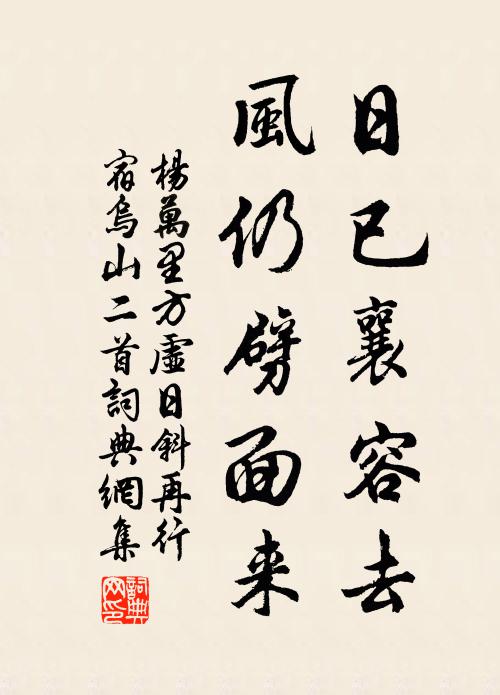 日已襄容去
風仍劈面来
楊萬里方虛日斜再行
宿烏山二首詞典網集
詞典網印